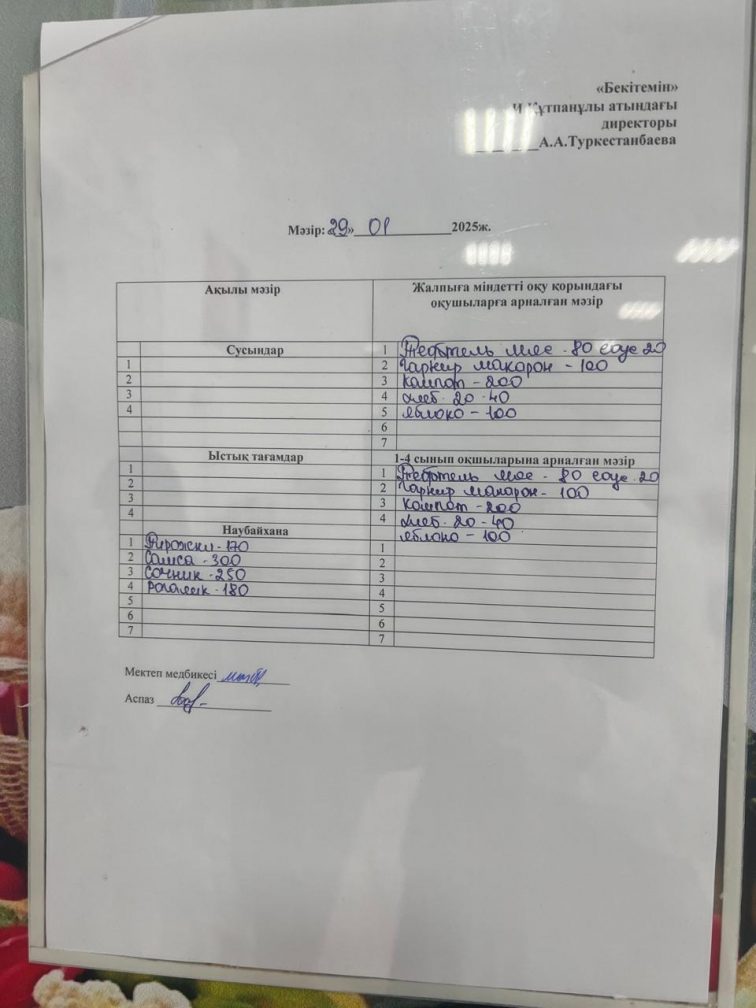 «Бекітемін»
Құтпанұлы атындағы
директоры
А.А.Туркестанбаева
Мәзір: «29» 01 2025ж.
Ақылы мәзір
Жалпыға міндетті оқу қорындағы
оқушыларға арналған мәзір
Сусындар
1
2
3
4
1 Тефтель мяс - 80 соус 20
2 Гарнир макарон - 100
3 Компот - 200
4 хлеб 20 - 40
5 яблоко - 100
6
7
Ыстық тағамдар
1
2
3
4
1-4 сынып оқшыларына арналған мәзір
1 Тефтель мяс - 80 соус 20
2 Гарнир макарон - 100
3 Компот - 200
4 хлеб 20 - 40
яблоко - 100
Наубайхана
1 Пирожки - 170
2 Самса - 300
3 Сочник - 250
4 Рогалик - 180
5
6
7
1
2
3
4
5
6
7
Мектеп медбикесі
Аспаз